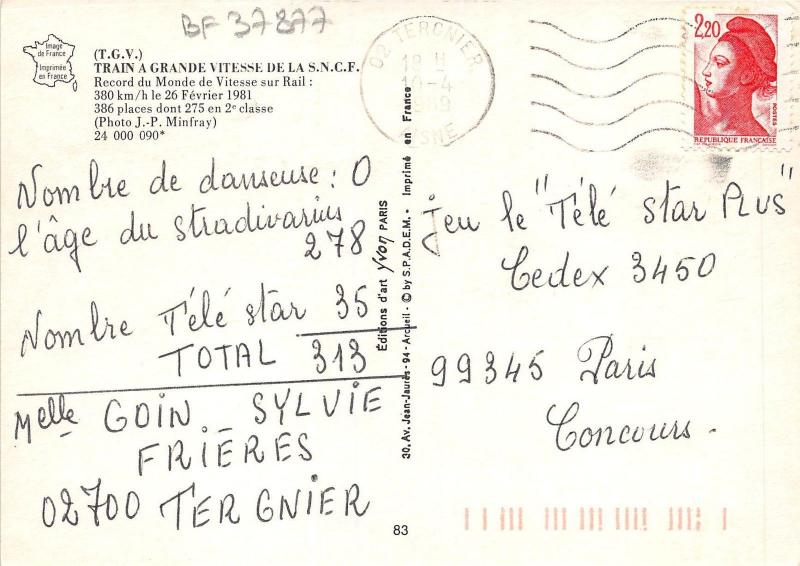 BF 37877
Image
de France
Imprimée
en France
(T.G.V.)
TRAIN A GRANDE VITESSE DE LA S.N.C.F.
Record du Monde de Vitesse sur Rail :
380 km/h le 26 Février 1981
386 places dont 275 en 2e classe
(Photo J.-P. Minfray)
24 000 090*
02 TERGNIER
18 H
10-4
1989
AISNE
2,20
POSTES
REPUBLIQUE FRANÇAISE
Nombre de danseuse : 0
l'âge du stradivarius
278
Nombre Télé star 35
TOTAL 313
Melle GOIN _ SYLVIE
FRIÈRES
02700 TERGNIER
Editions d'art Yvon PARIS
30, Av. Jean-Jaurès - 94 - Arcueil - © by S.P.A.D.E.M. - Imprimé en France
83
Jeu le "Télé star PLUS"
Cedex 3450
99345 Paris
Concours.